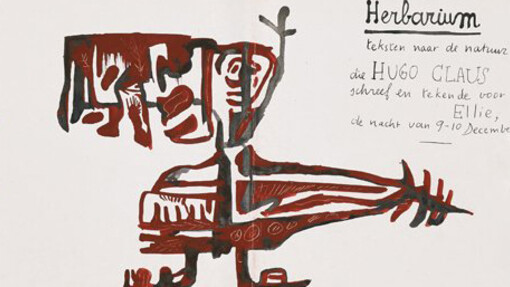 Herbarium
teksten naar de natuur
die HUGO CLAUS
schreef en tekende voor
Ellie,
de nacht van 9-10 Decembe